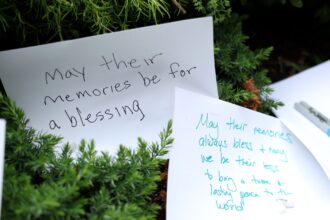 May their
memories be for
a blessing
May their memories
always bless & may
we be their
to bring a
lasting peace to the
world